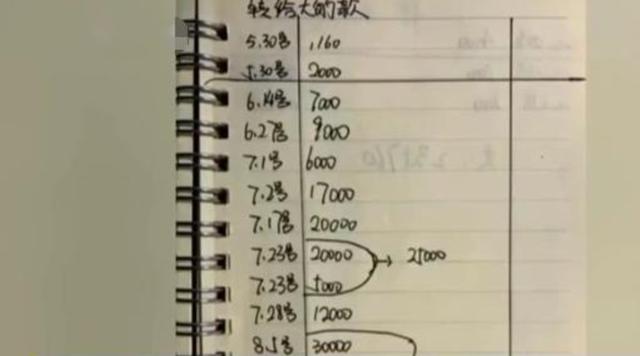 转给大的款
5.30号 1160
5.30号 2000
6.14号 7000
6.27号 9000
7.1号 6000
7.2号 17000
7.17号 20000
7.23号 20000 → 25000
7.23号 5000
7.28号 12000
8.5号 30000